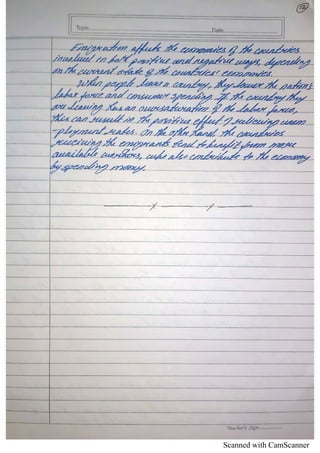 12
Topic
Date
Emigration affects the economies of the countries
involved in both positive and negative ways, depending
on the current state of the countries' economies.
When people leave a country, they lower the nation's
labor force and consumer spending. If the country they
are leaving has an oversaturation of the labor force,
this can result in the positive effect of relieving unem
-ployment rates. On the other hand, the countries
receiving the emigrants tend to benefit from more
available workers, who also contribute to the economy
by spending money.
Teacher's Sign
Scanned with CamScanner